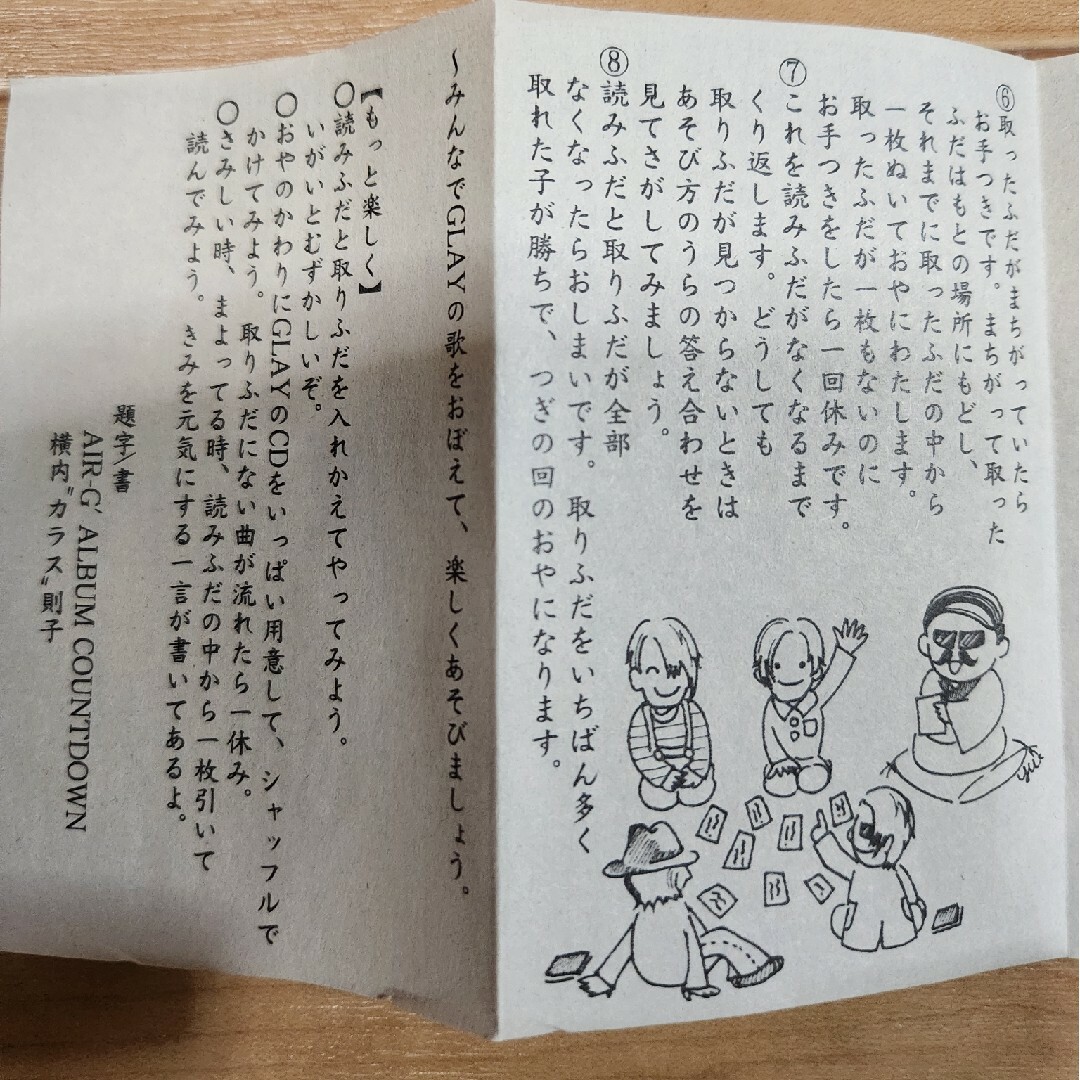 ⑥取ったふだがまちがっていたら
お手つきです。まちがって取った
ふだはもとの場所にもどし、
それまでに取ったふだの中から
一枚ぬいておやにわたします。
取ったふだが一枚もないのに
お手つきをしたら一回休みです。
⑦これを読みふだがなくなるまで
くり返します。どうしても
取りふだが見つからないときは
あそび方のうらの答え合わせを
見てさがしてみましょう。
⑧読みふだと取りふだが全部
なくなったらおしまいです。取りふだをいちばん多く
取れた子が勝ちで、つぎの回のおやになります。
～みんなでGLAYの歌をおぼえて、楽しくあそびましょう。
【もっと楽しく】
○読みふだと取りふだを入れかえてやってみよう。
いがいとむずかしいぞ。
○おやのかわりにGLAYのCDをいっぱい用意して、シャッフルで
かけてみよう。取りふだにない曲が流れたら一休み。
○さみしい時、まよってる時、読みふだの中から一枚引いて
読んでみよう。きみを元気にする一言が書いてあるよ。
題字/書
AIR-G' ALBUM COUNTDOWN
横内"カラス"則子